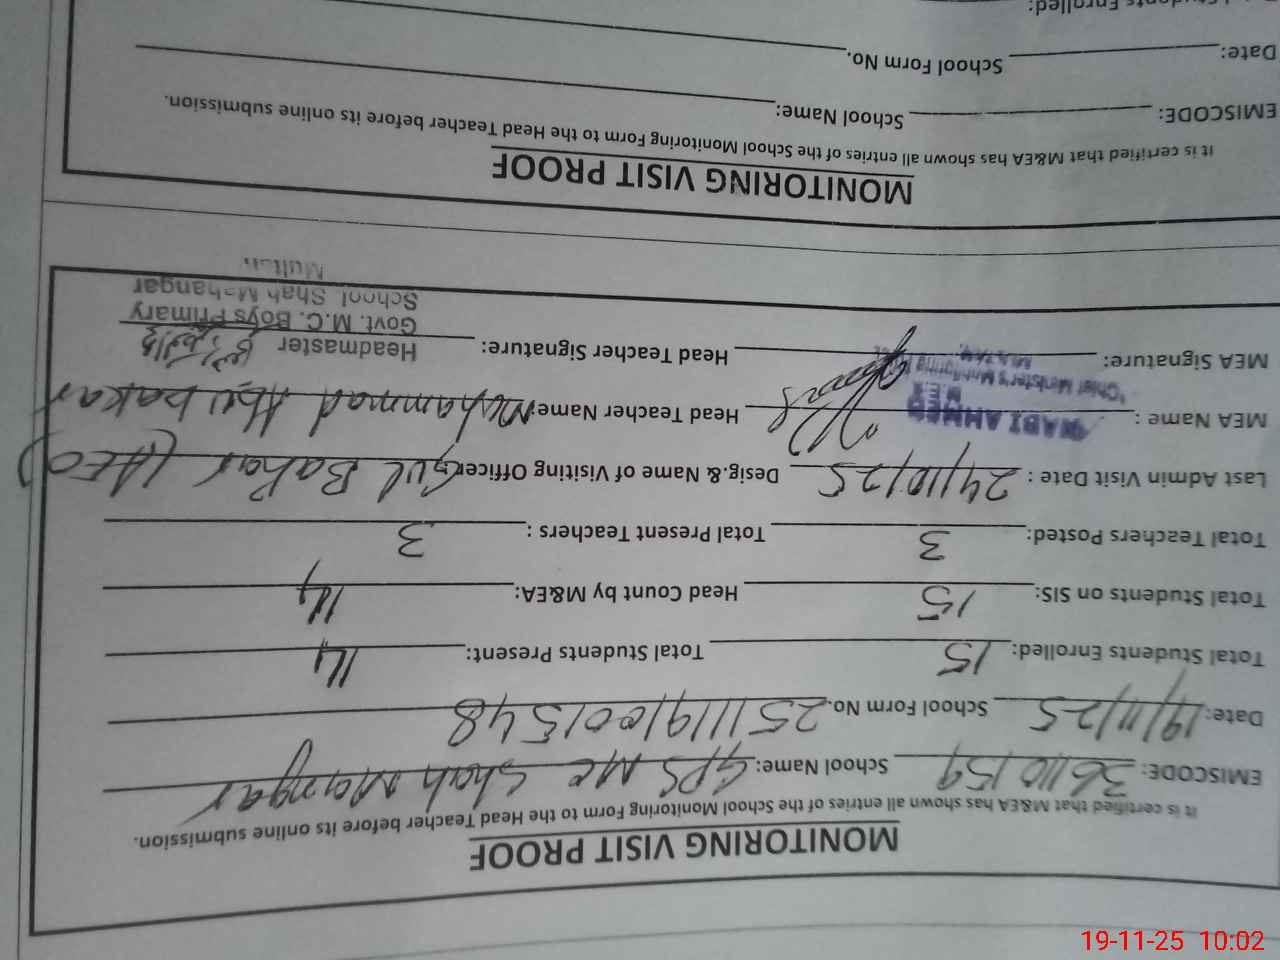 MONITORING VISIT PROOF
It is certified that M&EA has shown all entries of the School Monitoring Form to the Head Teacher before its online submission.
EMISCODE: 36110159 School Name: GPS MC Shah Mangar
Date: 19/11/25 School Form No. 2511191001548
Total Students Enrolled: 15 Total Students Present: 14
Total Students on SIS: 15 Head Count by M&EA: 14
Total Teachers Posted: 3 Total Present Teachers : 3
Last Admin Visit Date : 24/10/25 Desig.& Name of Visiting Officer Gul Bakar (AEO)
MEA Name : Head Teacher Name: Muhammad Abu bakar
MEA Signature: Head Teacher Signature:
"Chief Minister's Monitoring
Headmaster
Govt. M.C. Boys Primary
School Shah Mahangar
Multan
MONITORING VISIT PROOF
It is certified that M&EA has shown all entries of the School Monitoring Form to the Head Teacher before its online submission.
EMISCODE: School Name:
Date: School Form No.
Enrolled:
19-11-25 10:02